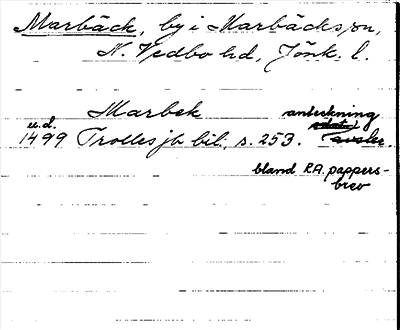 Marbäck, by i Marbäcks sn,
N. Vedbo hd, Jönk. l.
Marbek anteckning
u.d.
1499 Trolles jb bil., s. 253. avskr.
bland RA. pappers-
brev